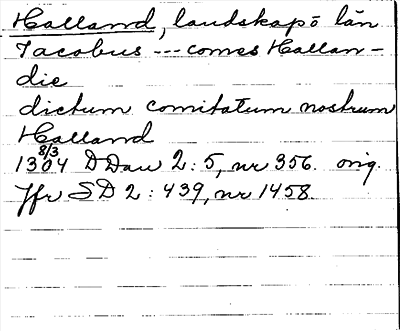 Halland, landskap o län
Jacobus --- comes Hallan-
die
dictum comitatum nostrum
Halland
8/3
1304 DDan 2:5, nr 356. orig.
Jfr SD 2:439, nr 1458.